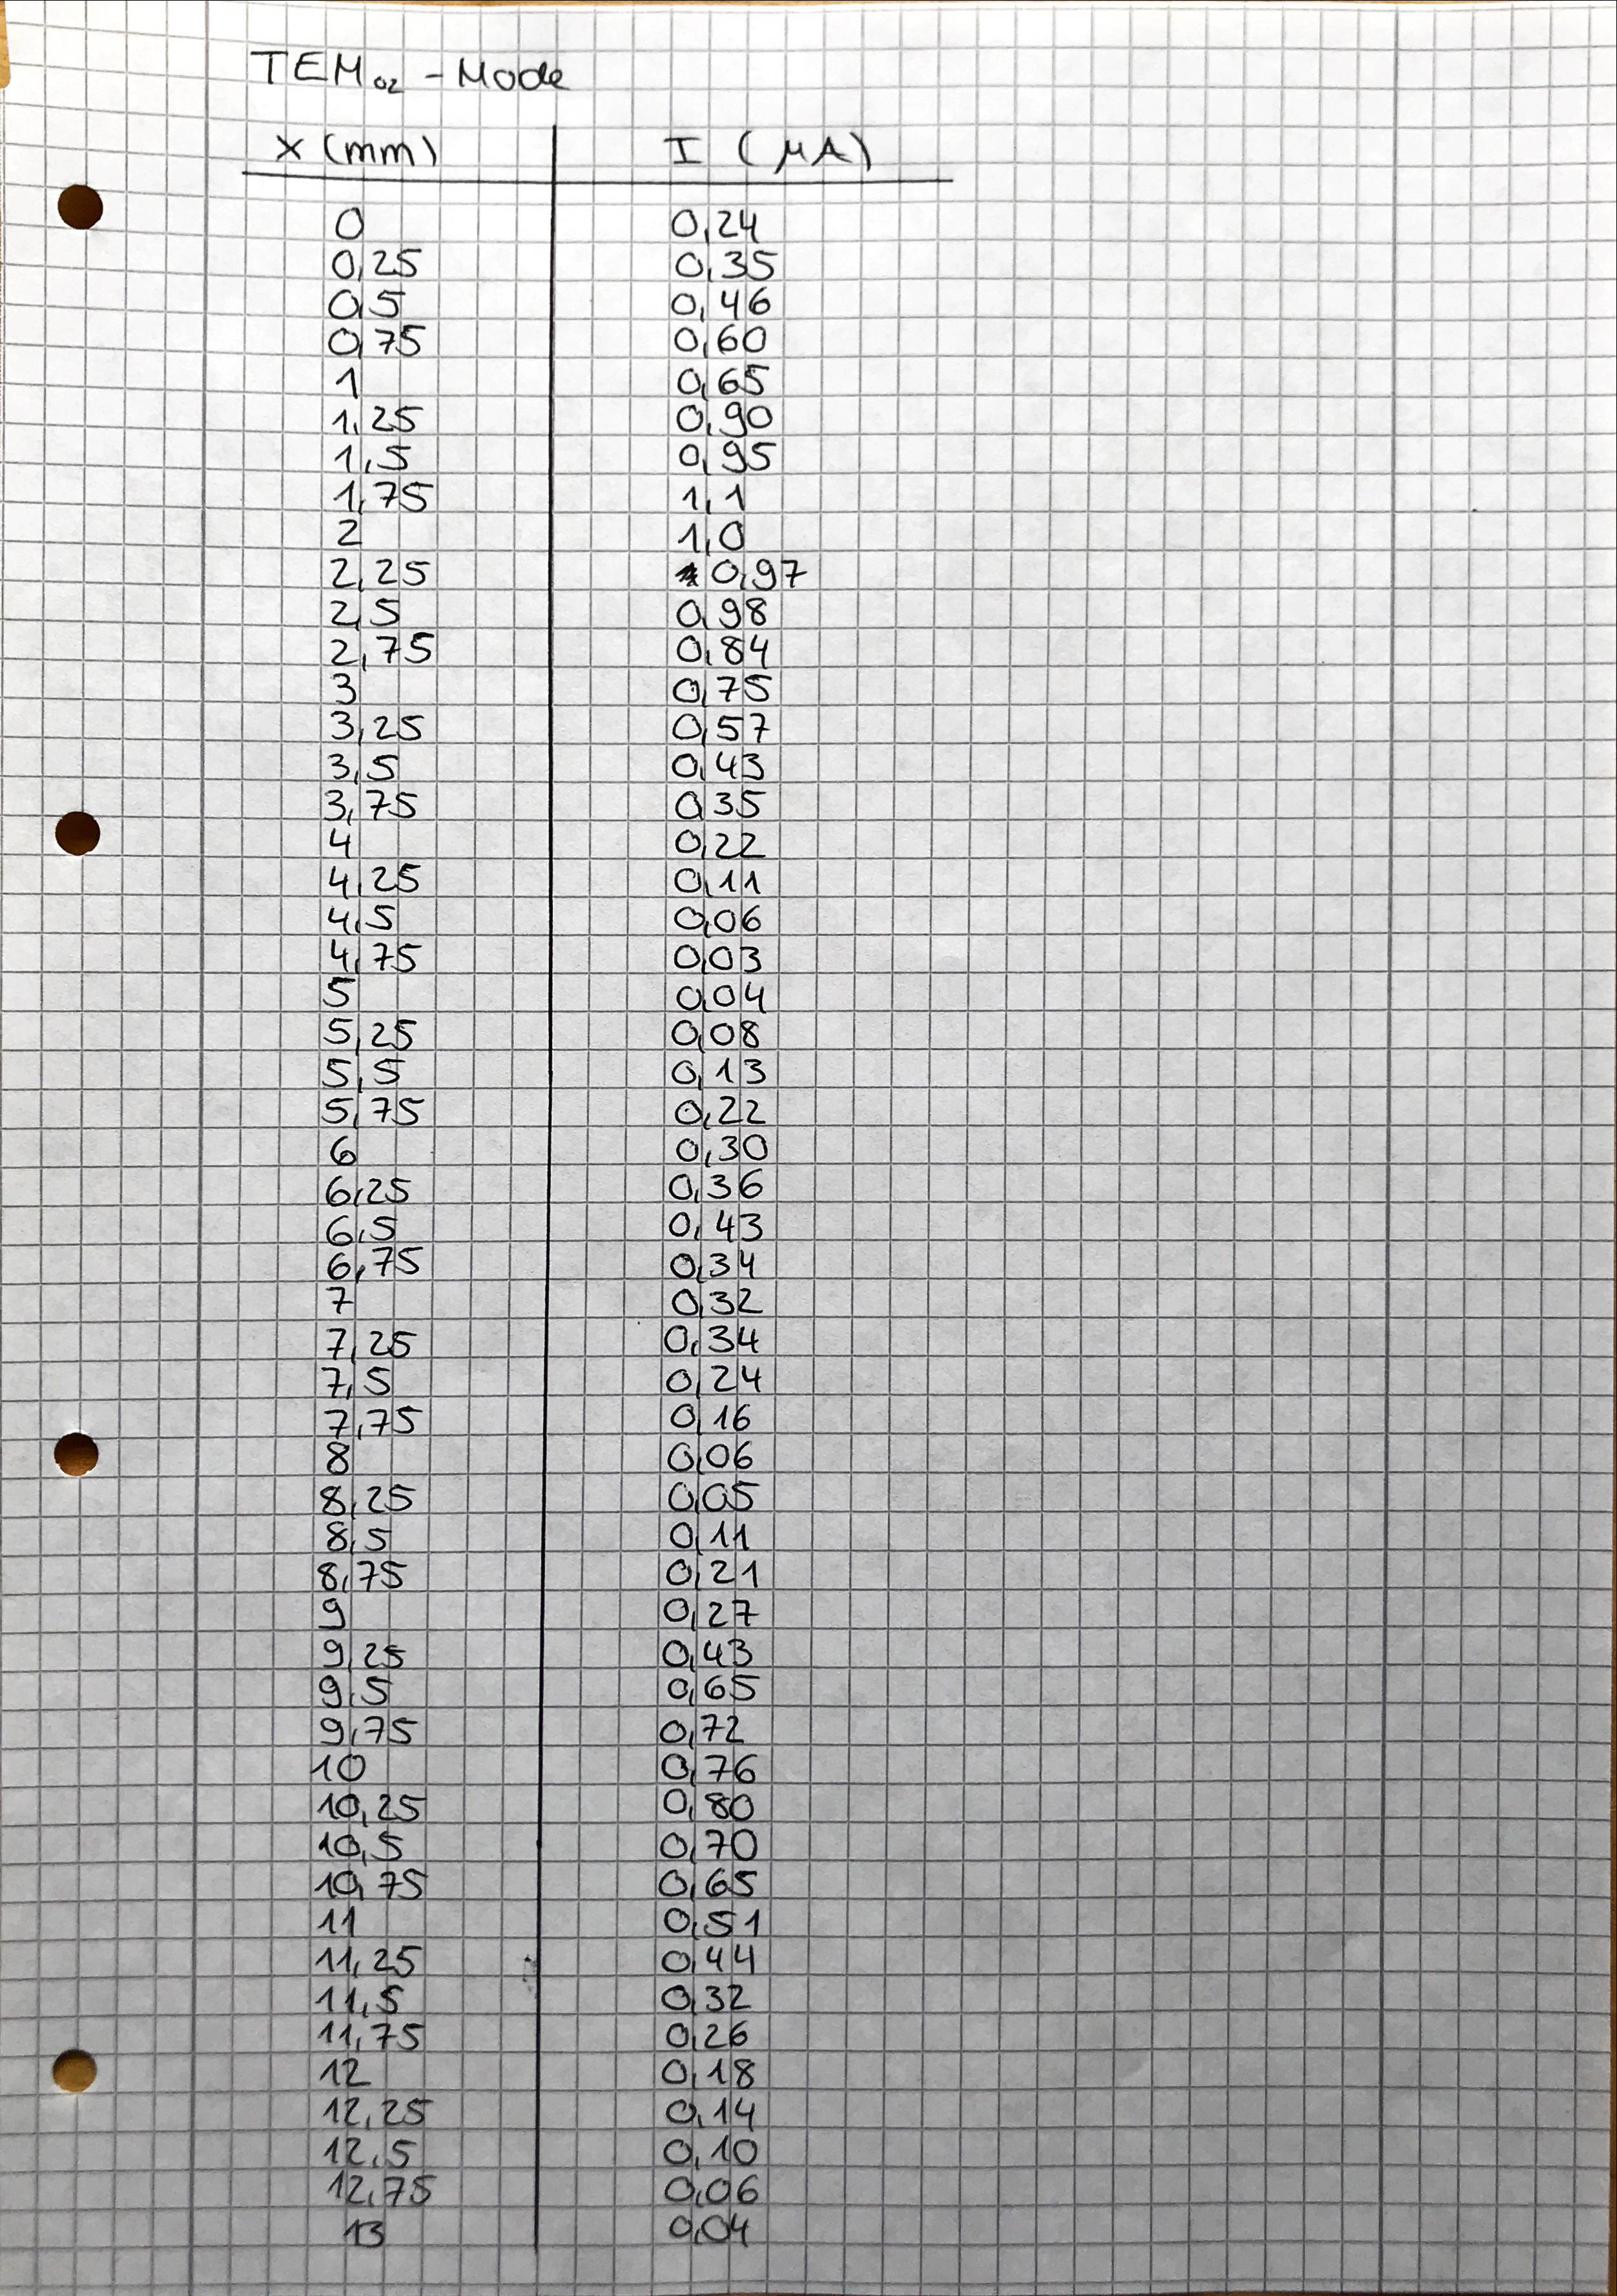 TEM₀₂ - Mode
x (mm) I (µA)
0 0,24
0,25 0,35
0,5 0,46
0,75 0,60
1 0,65
1,25 0,90
1,5 0,95
1,75 1,1
2 1,0
2,25 0,97
2,5 0,98
2,75 0,84
3 0,75
3,25 0,57
3,5 0,43
3,75 0,35
4 0,22
4,25 0,11
4,5 0,06
4,75 0,03
5 0,04
5,25 0,08
5,5 0,13
5,75 0,22
6 0,30
6,25 0,36
6,5 0,43
6,75 0,34
7 0,32
7,25 0,34
7,5 0,24
7,75 0,16
8 0,06
8,25 0,05
8,5 0,11
8,75 0,21
9 0,27
9,25 0,43
9,5 0,65
9,75 0,72
10 0,76
10,25 0,80
10,5 0,70
10,75 0,65
11 0,51
11,25 0,44
11,5 0,32
11,75 0,26
12 0,18
12,25 0,14
12,5 0,10
12,75 0,06
13 0,04